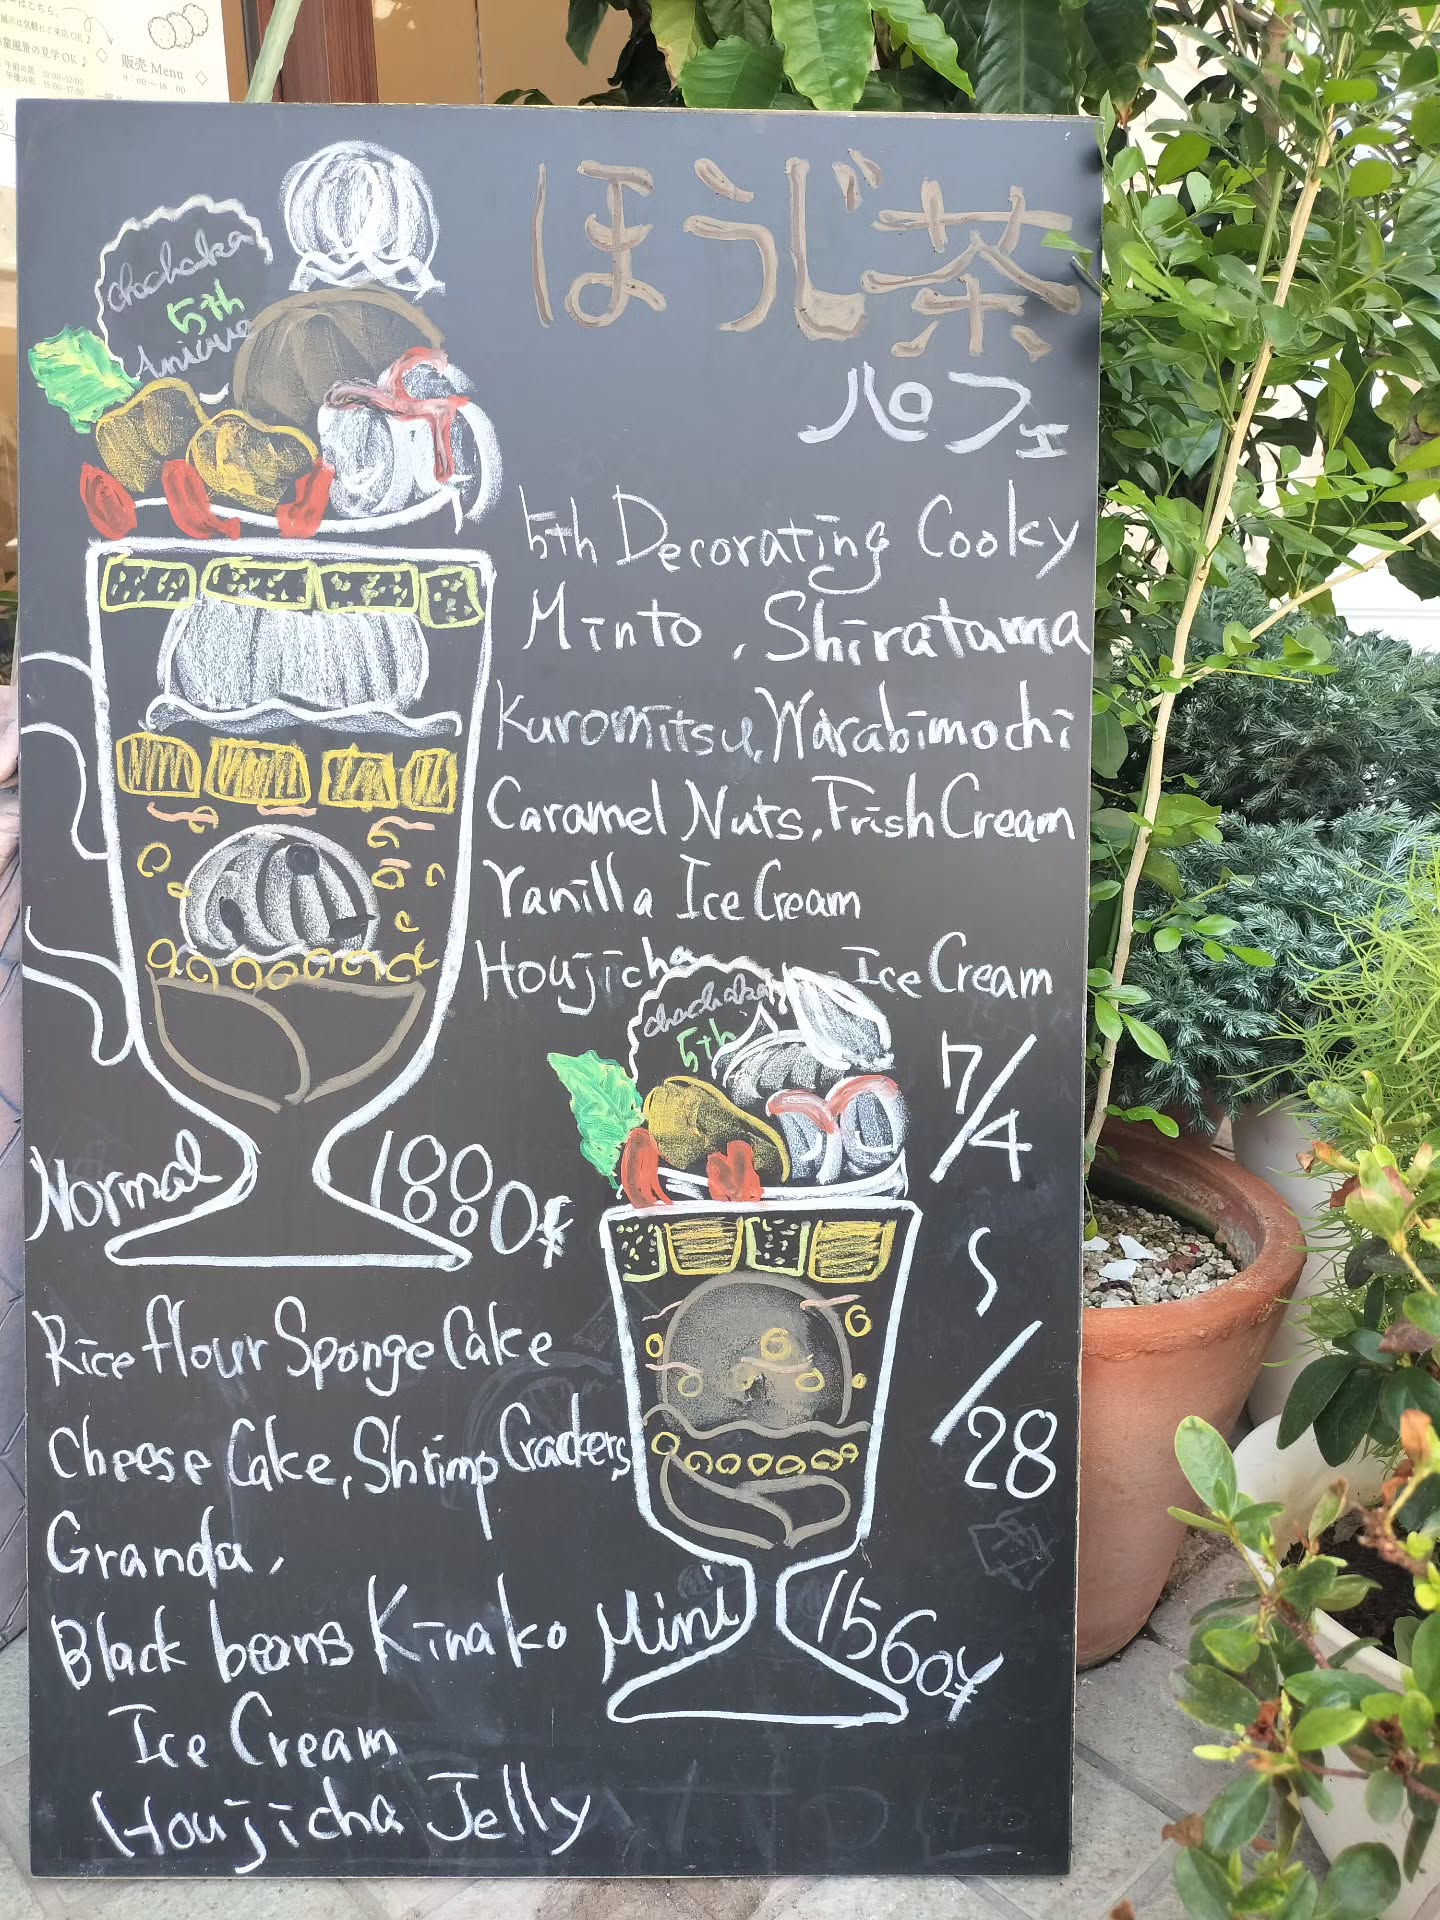 販売 Menu
午前の部 10:00-12:00
午後の部 15:00-17:00
chachaka
5th
ほうじ茶
パフェ
5th Decorating Cooky
Minto, Shiratama
Kuromitsu, Warabimochi
Caramel Nuts, Frish Cream
Vanilla Ice Cream
Houjicha Ice Cream
chachaka
5th
7/4
S
/28
Normal 1880¥
Rice flour Sponge Cake
Cheese Cake, Shrimp Crackers
Granola,
Black beans Kinako
Ice Cream
Houjicha Jelly
Mini 1560¥